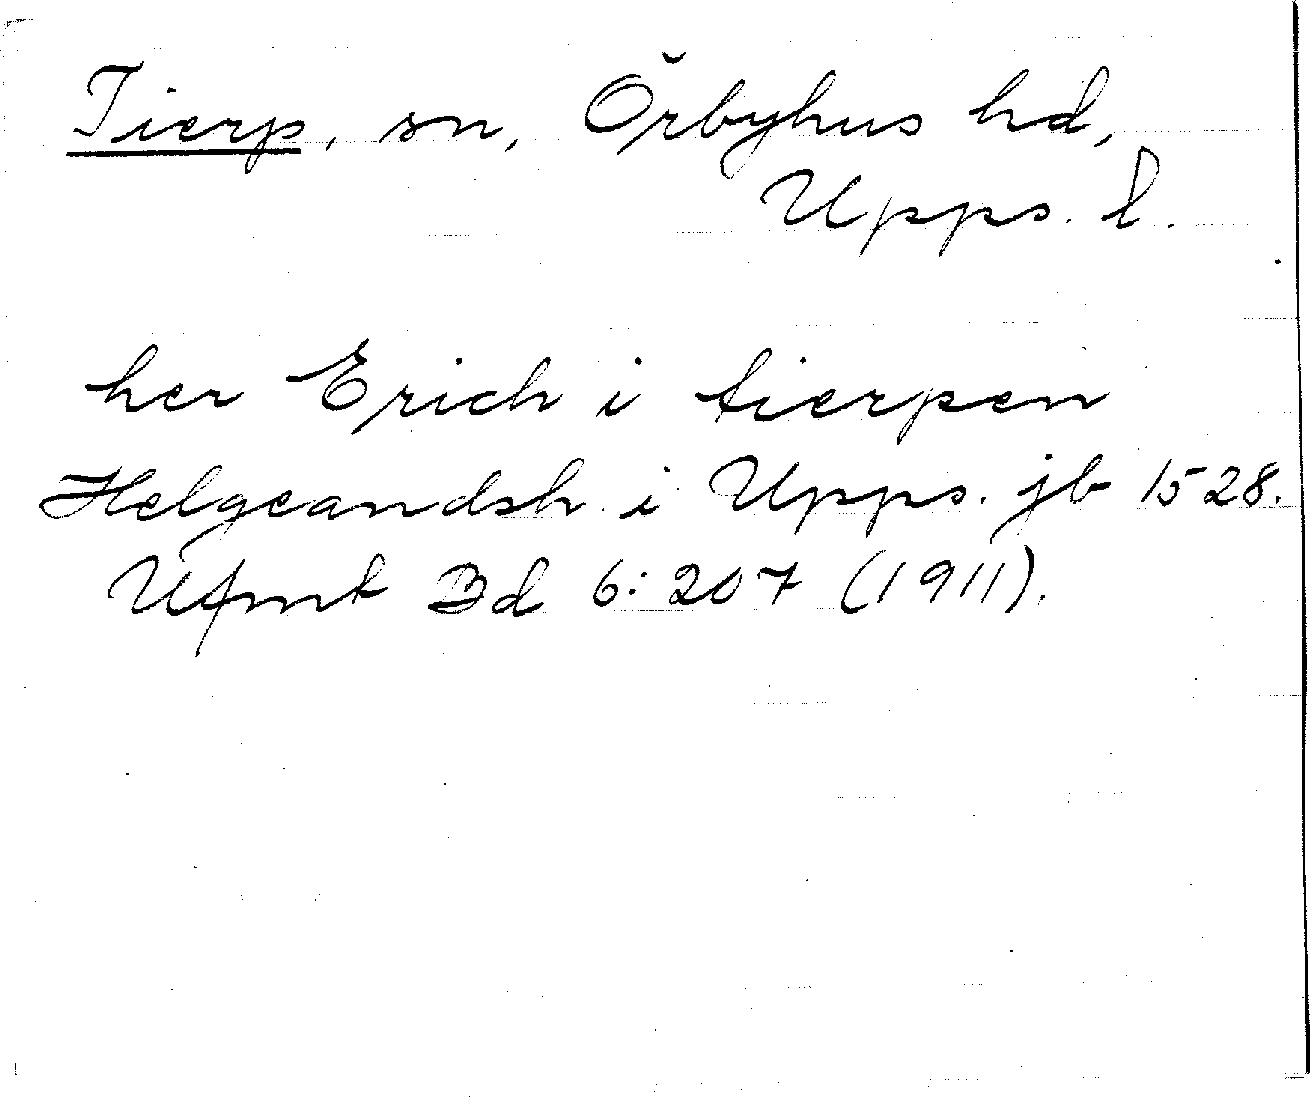 Tierp, sn, Örbyhus hd,
Upps. l.
her Erich i tierpen
Helgeandsh i Upps. jb 1528.
Ufmt Bd 6:207 (1911).